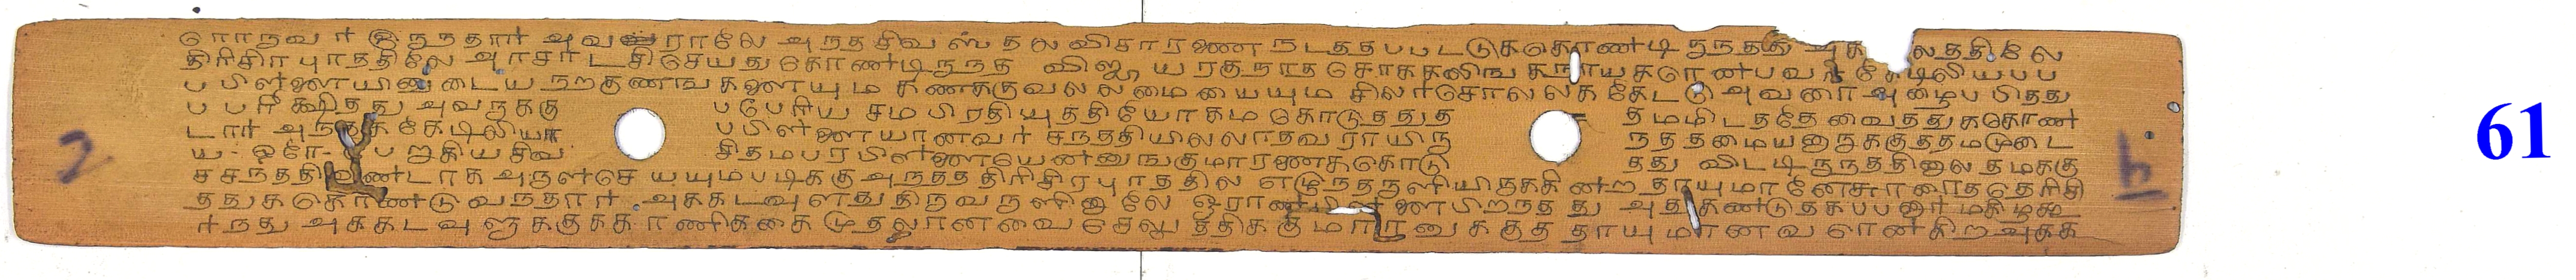 ளொருவர் இருந்தார் அவராலே அந்த சிவஸ்தல விசாரணை நடத்தப்பட்டுக்கொண்டிருந்தது அக லத்திலே
திரிசிரபுரத்திலே அரசாட்சி செய்துகொண்டிருந்த விஜயரகுநாத சொக்கலிங்க நாயகரென்பவர் கேடிலியப்ப
ப பிள்ளையினுடைய நற்குணங்களையும் கணக்குவல்லமையையும் சிலர்சொல்லக் கேட்டு அவரை அழைப்பித்து
ப பரீக்ஷித்து அவருக்கு பபெரிய சம்பிரதியுத்தியோகம் கொடுத்துத் தம்மிடத்தே வைத்துக்கொண்
டார் அந்தக் கேடிலியப்ப பபிள்ளையானவர் சந்ததியில்லாதவராயிரு ந்த தமையனுக்குத் தம்முடை
ய ஒரே பெறுகிய சிவ சிதம்பரபிள்ளையென்னுங்குமாரனைக்கொடு த்து விட்டிருந்ததினாலே தமக்கு
ச்சந்ததியுண்டாக அருள்செய்யும்படிக்கு அந்தத் திரிசிரபுரத்தில் எழுந்தருளியிருக்கின்ற தாயுமானேசுரரைத் தெரிசி
த்துக்கொண்டு வந்தார் அக்கடவுளது திருவருளினாலே ஓராண்பிள்ளை பிறந்தது அதுகண்டு தகப்பனார் மகிழ்கூ
ர்ந்து அக்கடவுளுக்குக் காணிக்கை முதலானவை செலுத்திக் குமாரனுக்குத் தாயுமானவரென்கிற அக்க
2
61